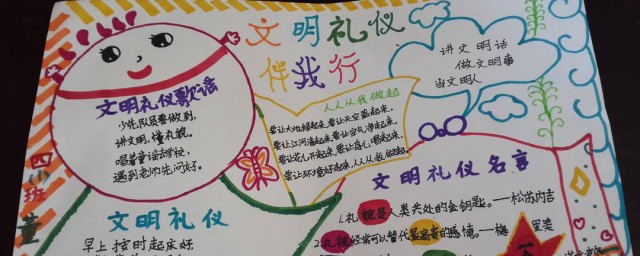 文明礼仪
伴我行
讲文明话
做文明事
当文明人
文明礼仪歌谣
少先队员要做到,
讲文明,懂礼貌。
唱着童谣去学校,
遇到老师先问好。
人人从我做起
要让大地绿起来,要让天空蓝起来,
要让江河清起来,要让空气净起来,
要让花儿开起来,要让鸟儿唱起来,
要让环境好起来,人人从我做起来。
四(5)班
董
文明礼仪名言
1.礼貌是人类共处的金钥匙。——松苏内吉
2.礼貌经常可以替代最高贵的感情。——梅里美
文明礼仪
早上按时起床好